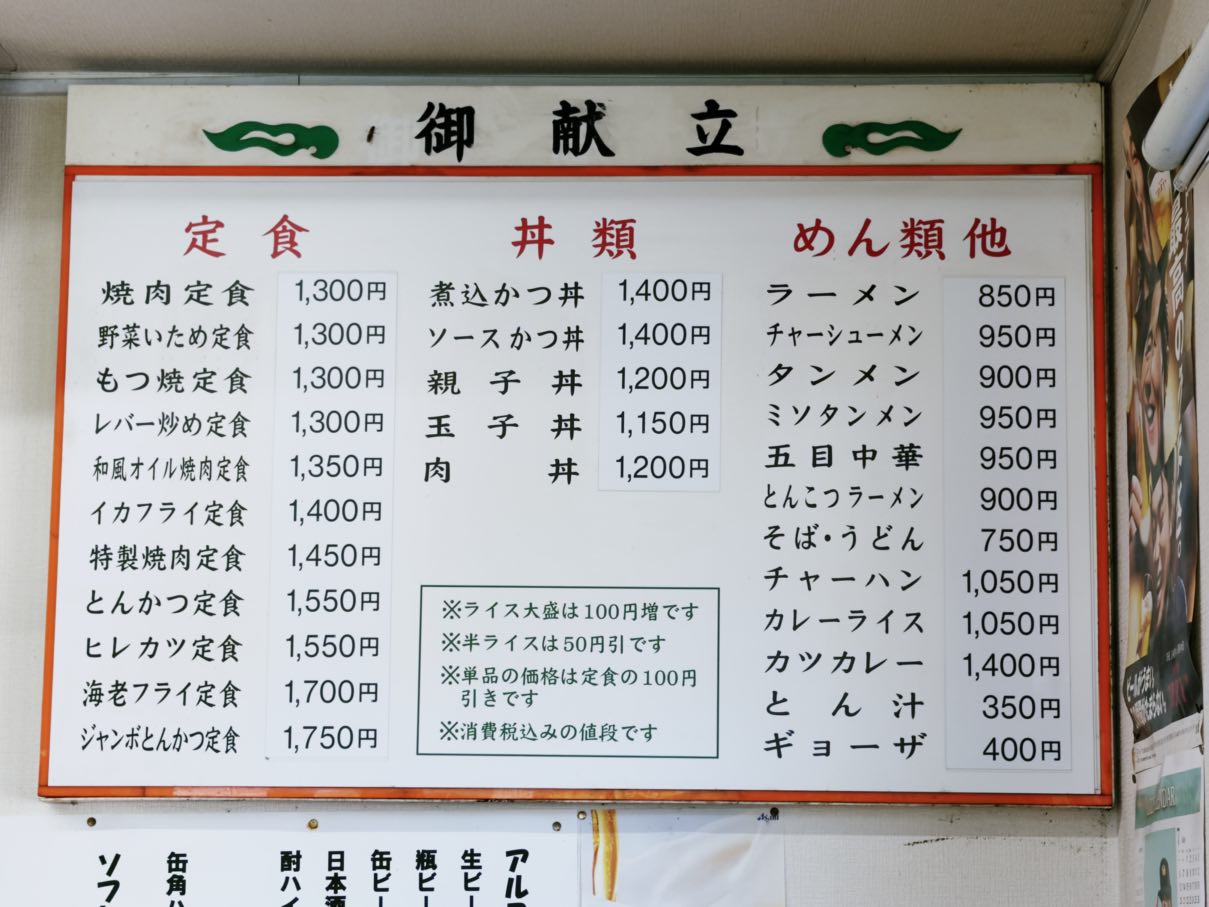 御献立
定食
焼肉定食 1,300円
野菜いため定食 1,300円
もつ焼定食 1,300円
レバー炒め定食 1,300円
和風オイル焼肉定食 1,350円
イカフライ定食 1,400円
特製焼肉定食 1,450円
とんかつ定食 1,550円
ヒレカツ定食 1,550円
海老フライ定食 1,700円
ジャンボとんかつ定食 1,750円
丼類
煮込かつ丼 1,400円
ソースかつ丼 1,400円
親子丼 1,200円
玉子丼 1,150円
肉丼 1,200円
※ライス大盛は100円増です
※半ライスは50円引です
※単品の価格は定食の100円
引きです
※消費税込みの値段です
めん類他
ラーメン 850円
チャーシューメン 950円
タンメン 900円
ミソタンメン 950円
五目中華 950円
とんこつラーメン 900円
そば・うどん 750円
チャーハン 1,050円
カレーライス 1,050円
カツカレー 1,400円
とん汁 350円
ギョーザ 400円
アル
生ビー
瓶ビー
缶ビー
日本酒
酎ハイ
缶角ハ
ソフ
Asahi
最高の